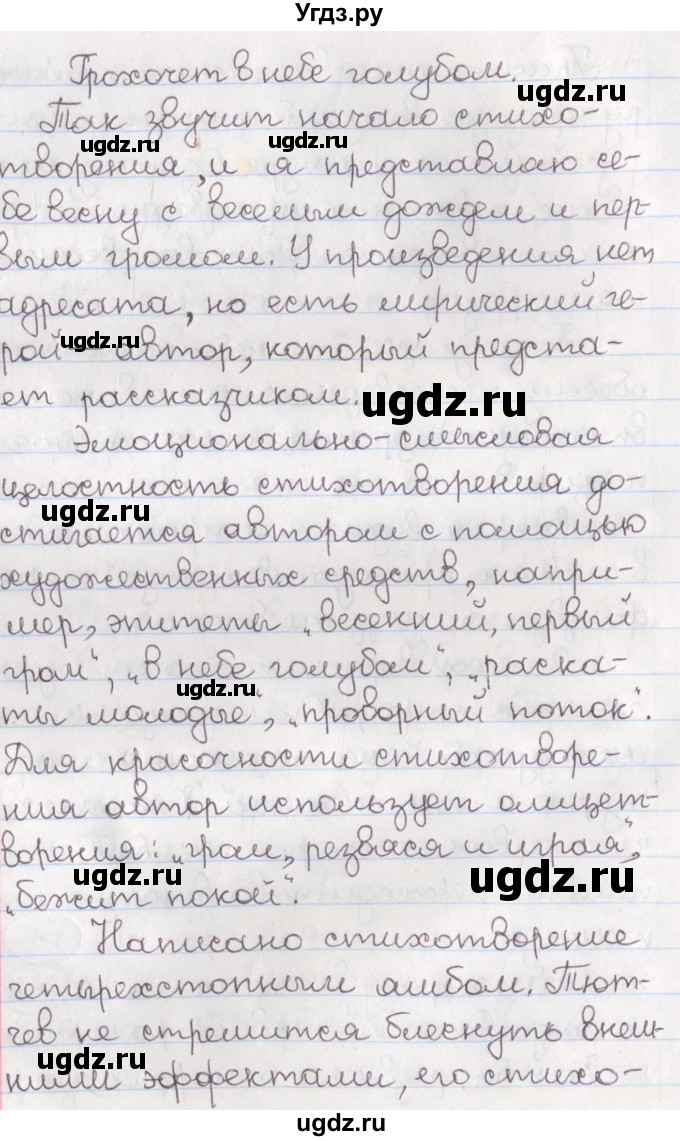 Угдз.ру
Грохочет в небе голубом.
ugdz.ru
Так звучит начало стихо-
ugdz.ru ugdz.ru
творения, и я представляю се-
бе весну с веселым дождем и пер-
вым громом. У произведения нет
адресата, но есть лирический ге-
ugdz.ru
рой – автор, который предста-
ет рассказчиком.
ugdz.ru
Эмоционально-смысловая
целостность стихотворения до-
ugdz.ru
стигается автором с помощью
художественных средств, напри-
мер, эпитеты „весенний, первый
гром“, „в небе голубом“, „раска-
ugdz.ru
ты молодые“, „проворный поток“.
Для красочности стихотворе-
ния автор использует олицет-
ворения: „гром, резвяся и играя“,
ugdz.ru ugdz.ru
„бежит покой“.
Написано стихотворение
четырехстопным ямбом. Тют-
чев не стремится блеснуть внеш-
ugdz.ru
ними эффектами, его стихо-
ugdz.ru